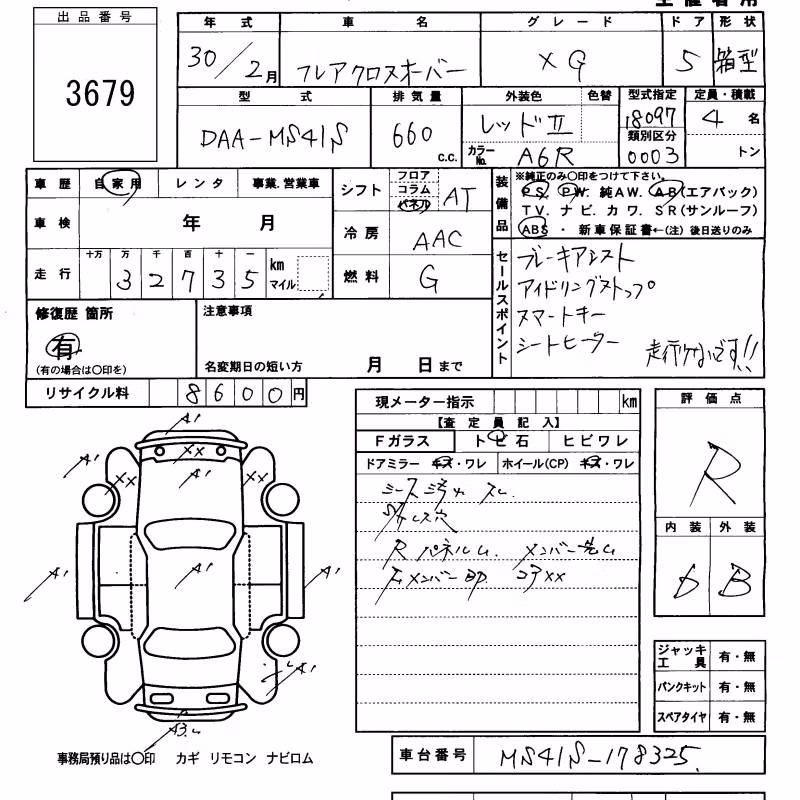 出品番号
3679
年式 車名 グレード ドア 形状
30/2月 フレアクロスオーバー XG 5 箱型
型式 排気量 外装色 色替 型式指定 定員・積載
DAA-MS41S 660 c.c. レッドⅡ 18097 4名
カラーNo. A6R 類別区分 0003 トン
車歴 自家用 レンタ 事業.営業車
車検 年 月
走行 十万 万 千 百 十 一
32735 km マイル
シフト フロア コラム パネル AT
冷房 AAC
燃料 G
装備品 ※純正のみ○印をつけて下さい。
PS. PW. 純AW. AB(エアバック)
TV. ナビ. カワ. SR(サンルーフ)
ABS ・ 新車保証書←(注) 後日送りのみ
セールスポイント
ブレーキアシスト
アイドリングストップ
スマートキー
シートヒーター 走行少ないです!!
修復歴 箇所
有
(有の場合は○印を)
注意事項
名変期日の短い方 月 日まで
リサイクル料 8600円
現メーター指示 km
【査定員記入】
Fガラス トビ石 ヒビワレ
ドアミラー キズ・ワレ ホイール(CP) キズ・ワレ
シース汚れ スレ
Rパネルム
FメンバーBP コアXX
評価点
R
内装 外装
D B
A' A' XX A' XX A' A' A' A' A'
ジャッキ工具 有・無
パンクキット 有・無
スペアタイヤ 有・無
事務局預り品は○印 カギ リモコン ナビロム
車台番号 MS41S-178325